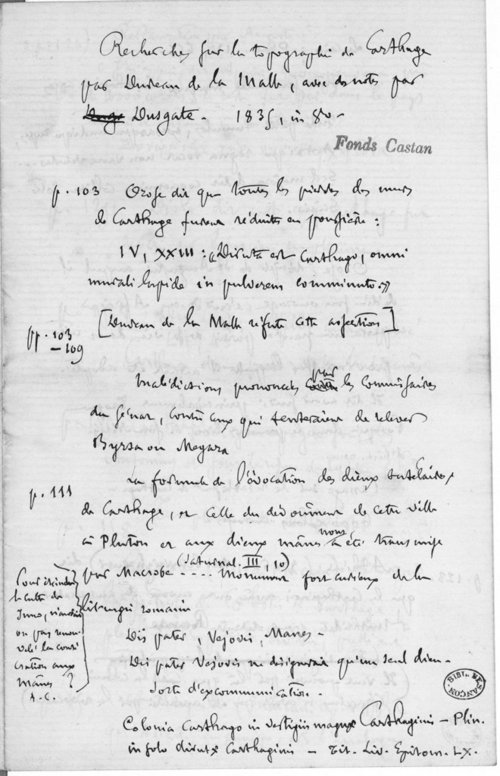 Recherches sur la topographie de Carthage
par Dureau de la Malle, avec des notes par
Dusgate. 1835, in 8o.
Fonds Castan
p. 103 Orose dit que toutes les pierres des murs
de Carthage furent réduites en poussière :
IV, XXIII : "Diruta est Carthago, omni
murali lapide in pulverem comminuto"
[Dureau de la Malle réfute cette assertion]
pp. 103
— 109
Malédictions prononcées par les Commissaires
du Sénat, contre ceux qui tenteraient de relever
Byrsa ou Megara
p. 111 La formule de l'évocation des dieux tutélaires
de Carthage, et celle du dévouement de cette ville
à Pluton et aux dieux mânes nous a été transmise
(Saturnal. III, 10)
par Macrobe .... Monument fort curieux de la
liturgie romaine
le culte de
Juno, n'a-t-on
ou pas renou-
velé la consé-
cration aux
mânes ?
A. C.
Dis pater, Vejovis, Manes.
Dis pater Vejovis ne désignerait qu'un seul dieu.
Sorte d'excommunication.
Colonia Carthago in vestigiis magnæ Carthaginis — Plin.
in solo dirutæ Carthaginis — Tit. Liv. Epitom. LX.
BIBL. DE BESANÇON